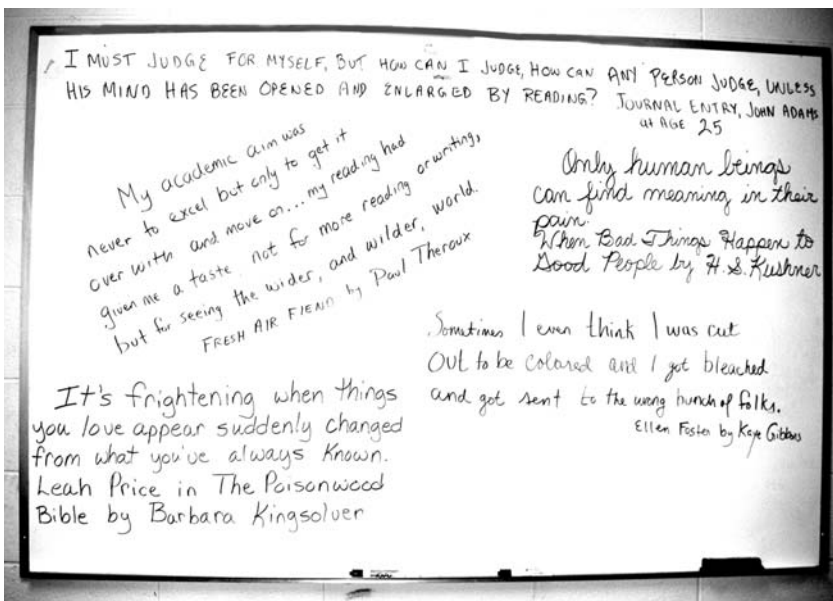 I MUST JUDGE FOR MYSELF, BUT HOW CAN I JUDGE, HOW CAN ANY PERSON JUDGE, UNLESS
HIS MIND HAS BEEN OPENED AND ENLARGED BY READING? JOURNAL ENTRY, JOHN ADAMS
at AGE 25
My academic aim was
never to excel but only to get it
over with and move on... my reading had
given me a taste not for more reading or writing,
but for seeing the wider, and wilder, world.
FRESH AIR FIEND by Paul Theroux
Only human beings
can find meaning in their
pain.
When Bad Things Happen to
Good People by H.S. Kushner
Sometimes I even think I was cut
OUT to be colored and I got bleached
and got sent to the wrong bunch of folks.
Ellen Foster by Kaye Gibbons
It's frightening when things
you love appear suddenly changed
from what you've always known.
Leah Price in The Poisonwood
Bible by Barbara Kingsolver